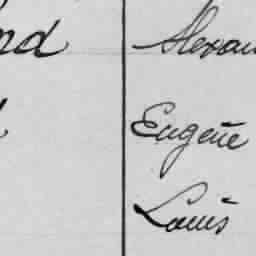 nd Alexan
Eugène
Louis